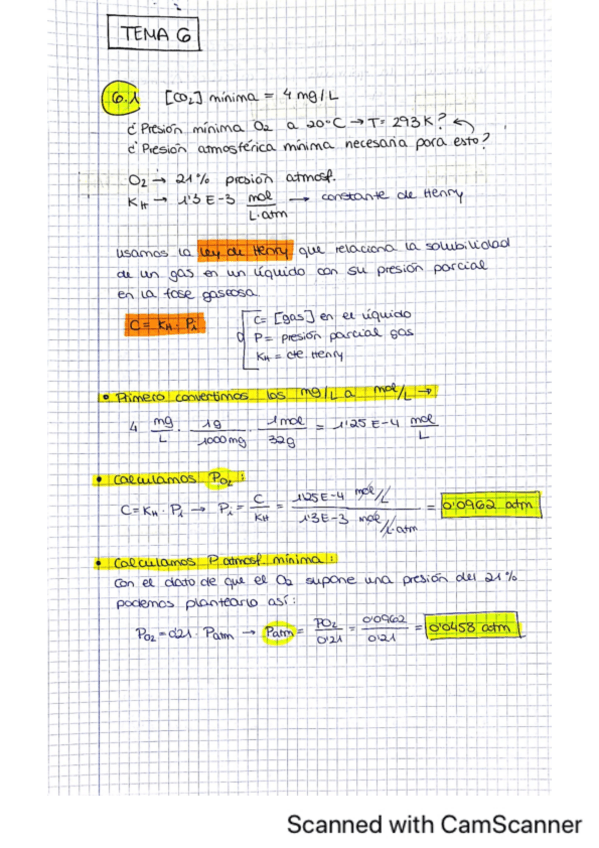 TEMA 6
6.1 [CO₂] mínima = 4 mg/L
¿Presión mínima O₂ a 20°C → T= 293K?
¿Presión atmosférica mínima necesaria para esto?
O₂ → 21% presión atmosf.
K_H → 1'3 E-3 mol/L·atm → constante de Henry
usamos la ley de Henry que relaciona la solubilidad
de un gas en un líquido con su presión parcial
en la fase gaseosa
C = K_H · P_i
C= [gas] en el líquido
P= presión parcial gas
K_H = cte Henry
• Primero convertimos los mg/L a mol/L →
4 mg/L · 1g/1000mg · 1mol/32g = 1'25 E-4 mol/L
• Calculamos P_O₂ :
C = K_H · P_i → P_i = C/K_H = 1'25E-4 mol/L / 1'3E-3 mol/L·atm = 0'0962 atm
• Calculamos P atmosf. mínima :
Con el dato de que el O₂ supone una presión del 21%
podemos plantearlo así :
P_O₂ = 0'21 · Patm → Patm = PO₂/0'21 = 0'0962/0'21 = 0'0458 atm
Scanned with CamScanner